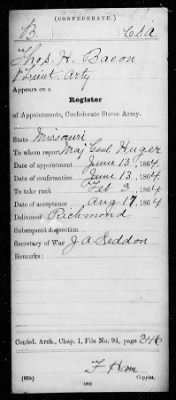 (CONFEDERATE.)
B. CSA
Thos. H. Bacon
1 Lieut. Arty
Appears on a
Register
of Appointments, Confederate States Army.
State Missouri
To whom report Maj Genl Huger
Date of appointment June 13, 1864.
Date of confirmation June 13, 1864
To take rank Feb 3, 1864
Date of acceptance Aug 17, 1864
Delivered Richmond
Subsequent disposition
Secretary of War J A Seddon
Remarks:
Copied. Arch., Chap. 1, File No. 94, page 346
F Ham
Copyist.